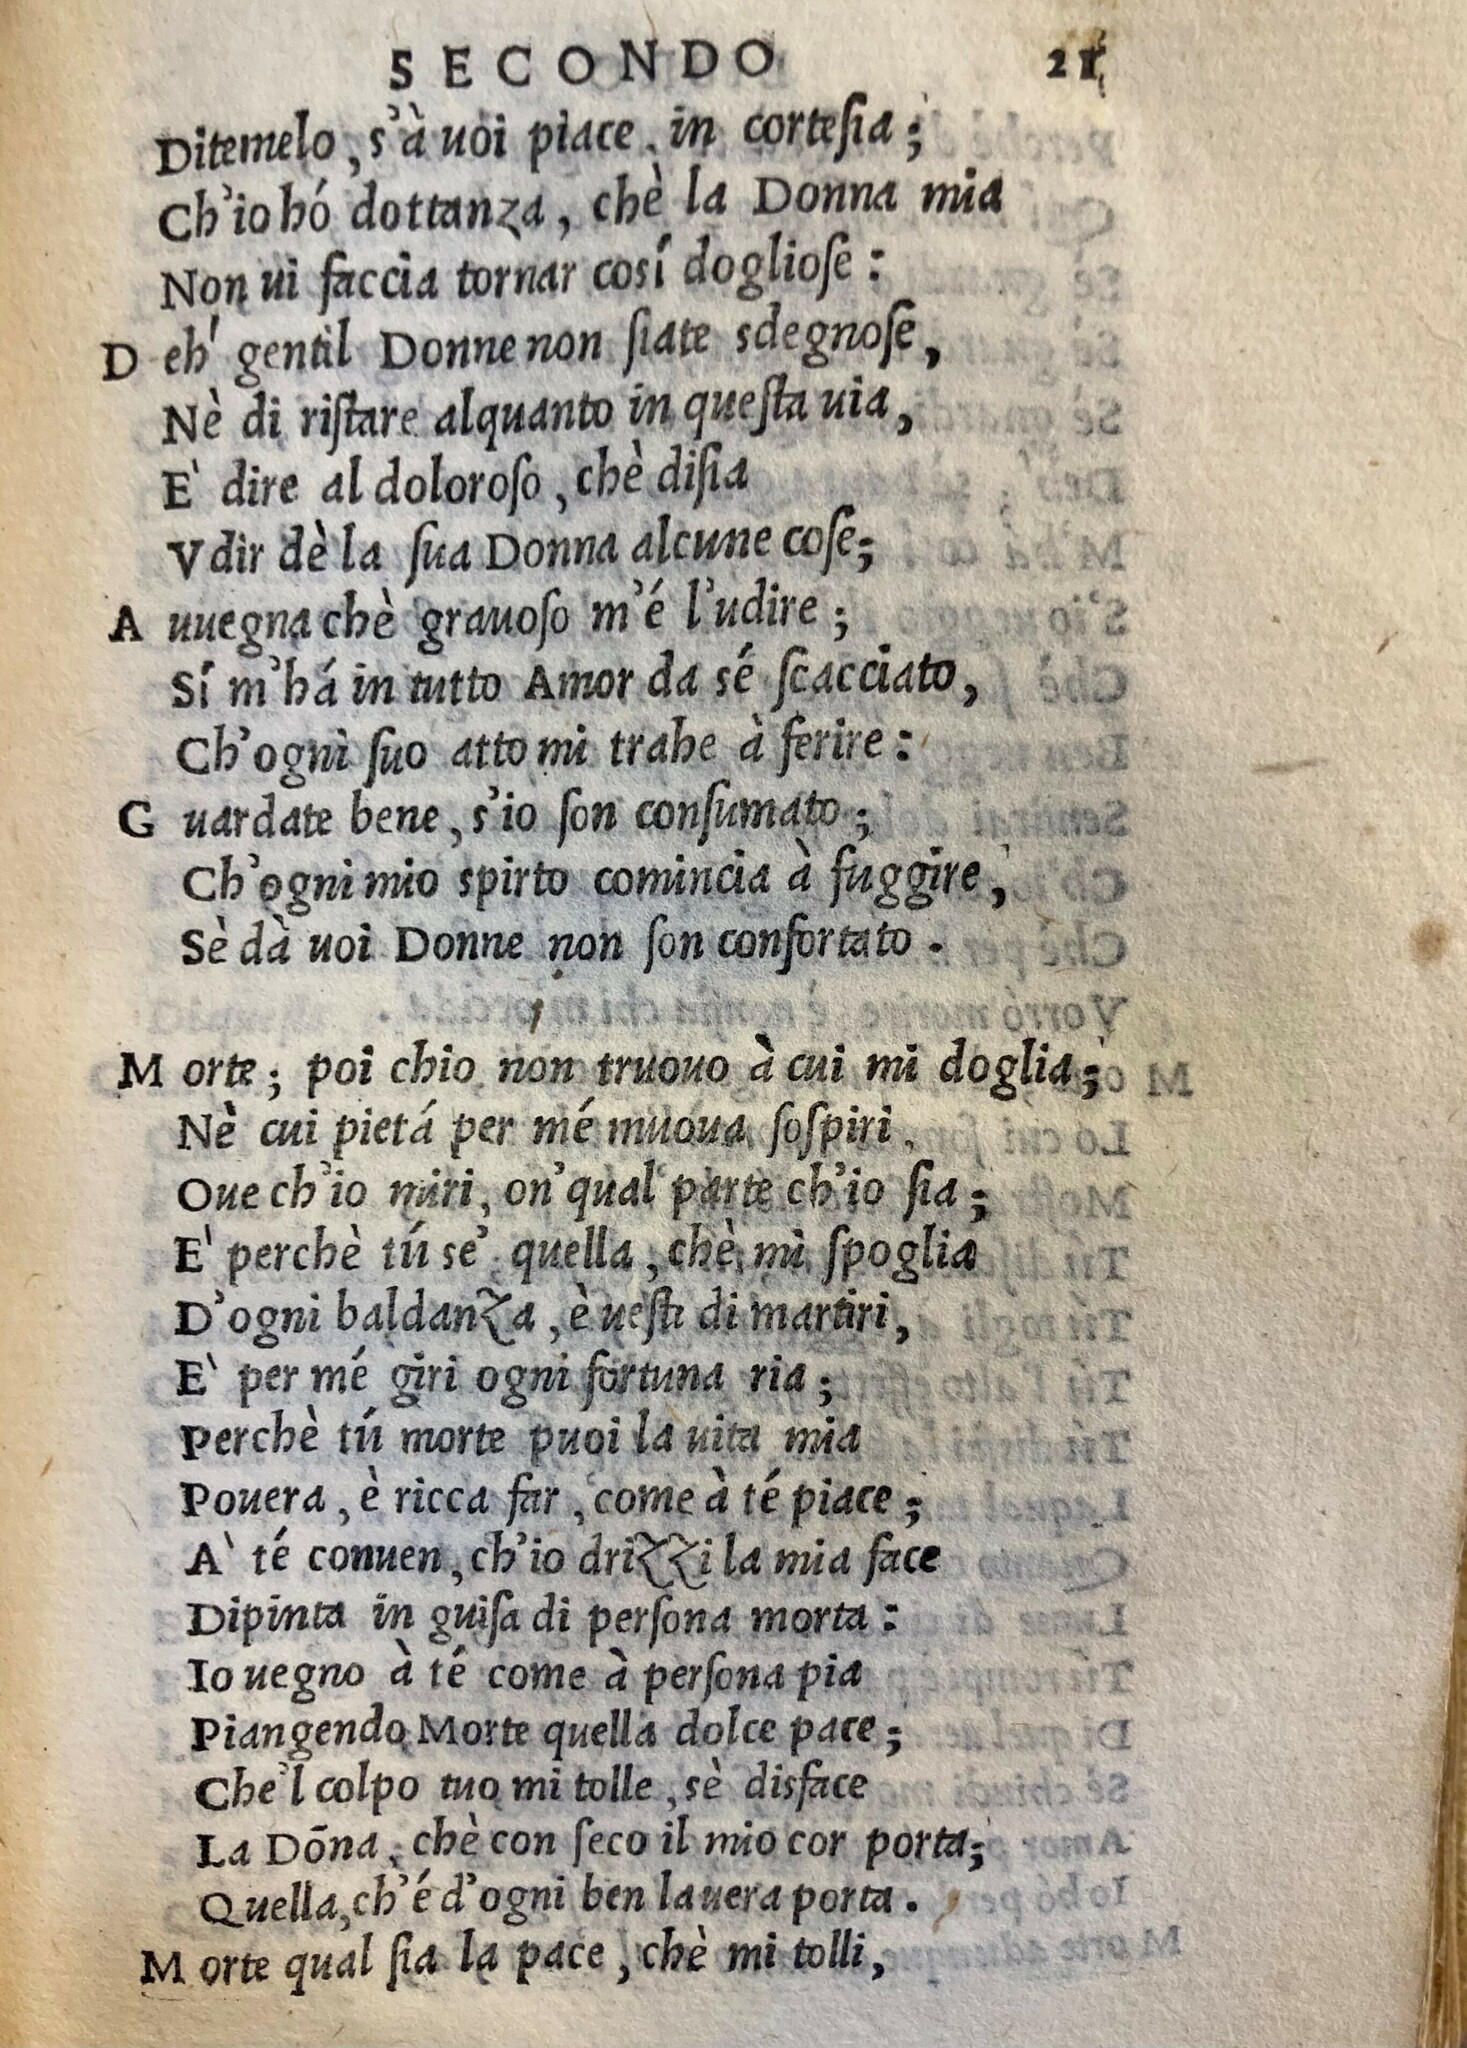 SECONDO 21
Ditemelo, s'à uoi piace, in corteſia;
Ch'io hó dottanza, chè la Donna mia
Non ui faccia tornar cosí doglioſe:
D eh' gentil Donne non ſiate sdegnoſe,
Nè di riſtare alquanto in queſta uia,
E' dire al doloroſo, chè diſia
Vdir dè la ſua Donna alcune coſe;
A uuegna chè grauoſo m'é l'udire;
Sí m'há in tutto Amor da sé ſcacciato,
Ch'ogni ſuo atto mi trahe à ferire:
G uardate bene, s'io ſon conſumato;
Ch'ogni mio spirto comincia à fuggire,
Sè dà uoi Donne non ſon confortato.
M orte; poi chio non truouo à cui mi doglia;
Nè cui pietá per mé muoua ſoſpiri,
Oue ch'io miri, on'qual parte ch'io ſia;
E' perchè tú se' quella, chè mi ſpoglia
D'ogni baldanza, è ueſti di martiri,
E' per mé giri ogni fortuna ria;
Perchè tú morte puoi la uita mia
Pouera, è ricca far, come à té piace;
A' té conuen, ch'io drizzi la mia face
Dipinta in guiſa di perſona morta:
Io uegno à té come à perſona pia
Piangendo Morte quella dolce pace;
Che'l colpo tuo mi tolle, sè disface
La Dōna, chè con ſeco il mio cor porta;
Quella, ch'é d'ogni ben la uera porta.
M orte qual ſia la pace, chè mi tolli,